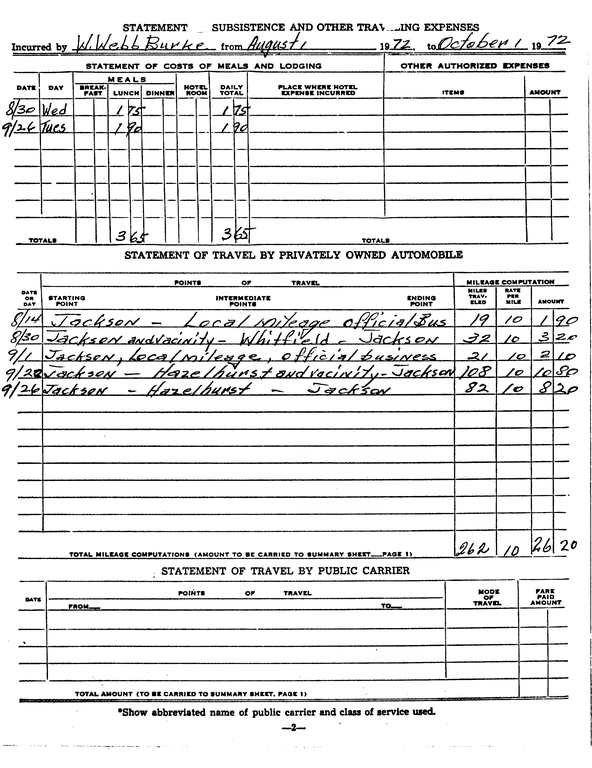 STATEMENT SUBSISTENCE AND OTHER TRAV...ING EXPENSES
Incurred by W. Webb Burke from August 1 1972, to October 1 1972
STATEMENT OF COSTS OF MEALS AND LODGING OTHER AUTHORIZED EXPENSES
DATE DAY MEALS BREAK-FAST LUNCH DINNER HOTEL ROOM DAILY TOTAL PLACE WHERE HOTEL EXPENSE INCURRED ITEMS AMOUNT
8/30 Wed 1 75 1 75
9/26 Tues 1 90 1 90
TOTALS 3 65 3 65 TOTALS
STATEMENT OF TRAVEL BY PRIVATELY OWNED AUTOMOBILE
DATE OR DAY POINTS OF TRAVEL MILEAGE COMPUTATION
STARTING POINT INTERMEDIATE POINTS ENDING POINT MILES TRAV-ELED RATE PER MILE AMOUNT
8/14 Jackson - Local mileage official Bus 19 10 1 90
8/30 Jackson and vacinity - Whitfield - Jackson 32 10 3 20
9/1 Jackson, local mileage, official business 21 10 2 10
9/22 Jackson - Hazelhurst and vacinity - Jackson 108 10 10 80
9/26 Jackson - Hazelhurst - Jackson 82 10 8 20
TOTAL MILEAGE COMPUTATIONS (AMOUNT TO BE CARRIED TO SUMMARY SHEET PAGE 1) 262 10 26 20
STATEMENT OF TRAVEL BY PUBLIC CARRIER
DATE POINTS OF TRAVEL MODE OF TRAVEL FARE PAID AMOUNT
FROM TO
TOTAL AMOUNT (TO BE CARRIED TO SUMMARY SHEET, PAGE 1)
*Show abbreviated name of public carrier and class of service used.
—2—